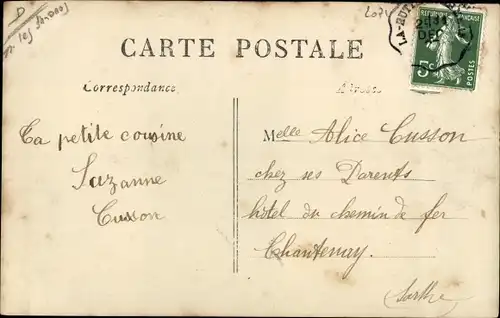 CARTE POSTALE
Correspondance
Ta petite cousine
Suzanne
Cusson
REPUBLIQUE FRANÇAISE
5c
POSTES
DEC
Melle Alice Cusson
chez ses Parents
hôtel du chemin de fer
Chantenay
Sarthe